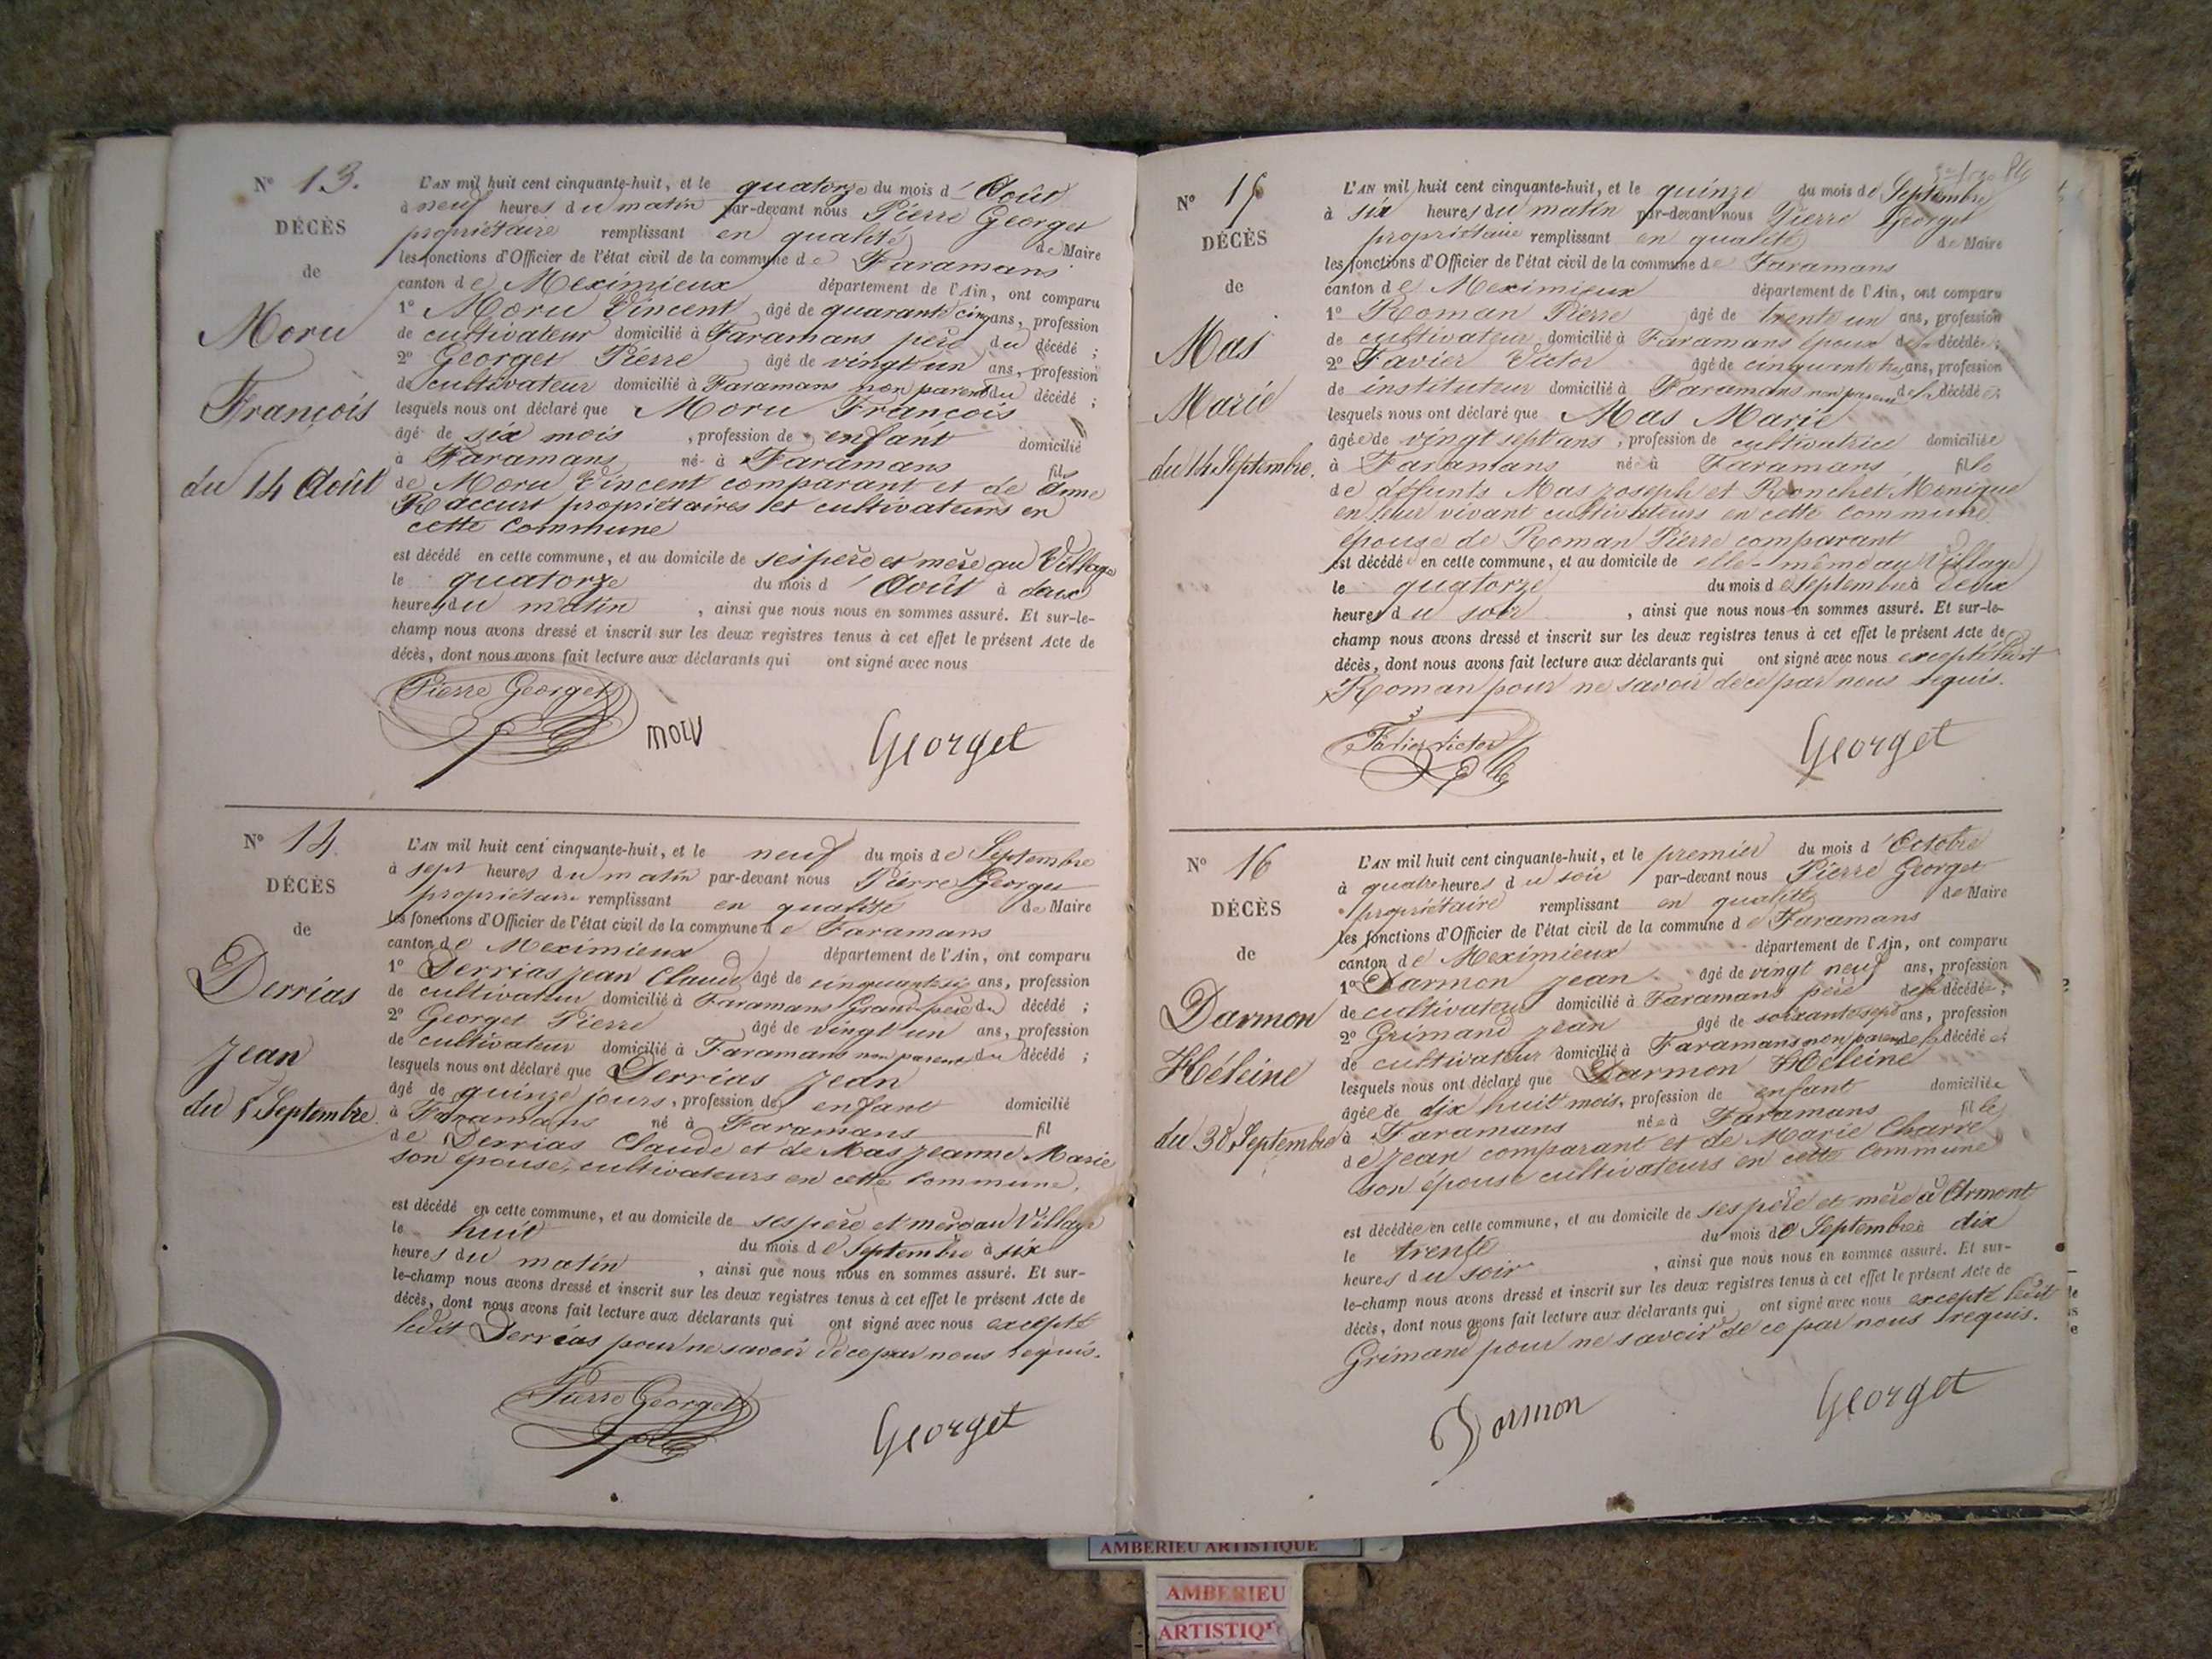 N° 13.
DÉCÈS
de
Moru
François
du 14 Août
L'AN mil huit cent cinquante-huit, et le quatorze du mois d'Août
à neuf heures du matin par-devant nous Pierre Georget
propriétaire remplissant en qualité de Maire
les fonctions d'Officier de l'état civil de la commune de Faramans
canton de Meximieux département de l'Ain, ont comparu
1° Moru Vincent âgé de quarante cinq ans, profession
de cultivateur domicilié à Faramans père du décédé ;
2° Georget Pierre âgé de vingt un ans, profession
de cultivateur domicilié à Faramans non parent du décédé ;
lesquels nous ont déclaré que Moru François
âgé de six mois, profession de enfant domicilié
à Faramans né à Faramans fils
de Moru Vincent comparant et de Anne
Raccurt propriétaires et cultivateurs en
cette commune
est décédé en cette commune, et au domicile de ses père et mère au Village
le quatorze du mois d'Août à deux
heures du matin, ainsi que nous nous en sommes assuré. Et sur-le-
champ nous avons dressé et inscrit sur les deux registres tenus à cet effet le présent Acte de
décès, dont nous avons fait lecture aux déclarants qui ont signé avec nous
Pierre Georget moru Georget
N° 14.
DÉCÈS
de
Derrias
Jean
du 8 Septembre
L'AN mil huit cent cinquante-huit, et le neuf du mois de Septembre
à sept heures du matin par-devant nous Pierre Georget
propriétaire remplissant en qualité de Maire
les fonctions d'Officier de l'état civil de la commune de Faramans
canton de Meximieux département de l'Ain, ont comparu
1° Derrias Jean Claude âgé de cinquante six ans, profession
de cultivateur domicilié à Faramans Grand-père du décédé ;
2° Georget Pierre âgé de vingt un ans, profession
de cultivateur domicilié à Faramans non parent du décédé ;
lesquels nous ont déclaré que Derrias Jean
âgé de quinze jours, profession de enfant domicilié
à Faramans né à Faramans fil
de Derrias Claude et de Mas Jeanne Marie
son épouse, cultivateurs en cette commune,
est décédé en cette commune, et au domicile de ses père et mère au Village
le huit du mois de Septembre à six
heures du matin, ainsi que nous nous en sommes assuré. Et sur-
le-champ nous avons dressé et inscrit sur les deux registres tenus à cet effet le présent Acte de
décès, dont nous avons fait lecture aux déclarants qui ont signé avec nous excepté
ledit Derrias pour ne savoir de ce par nous requis.
Pierre Georget Georget
N° 15
DÉCÈS
de
Mas
Marie
du 14 Septembre.
L'AN mil huit cent cinquante-huit, et le quinze du mois de Septembre
à six heures du matin par-devant nous Pierre Georget
propriétaire remplissant en qualité de Maire
les fonctions d'Officier de l'état civil de la commune de Faramans
canton de Meximieux département de l'Ain, ont comparu
1° Roman Pierre âgé de trente un ans, profession
de cultivateur domicilié à Faramans époux de la décédée ;
2° Favier Victor âgé de cinquante ans, profession
de instituteur domicilié à Faramans non parent de la décédée
lesquels nous ont déclaré que Mas Marie
âgée de vingt sept ans, profession de cultivatrice domiciliée
à Faramans née à Faramans, fille
de défunts Mas Joseph et Ronchet Monique
en leur vivant cultivateurs en cette commune,
épouse de Roman Pierre comparant
est décédée en cette commune, et au domicile de elle-même au Village
le quatorze du mois de Septembre à deux
heures du soir, ainsi que nous nous en sommes assuré. Et sur-le-
champ nous avons dressé et inscrit sur les deux registres tenus à cet effet le présent Acte de
décès, dont nous avons fait lecture aux déclarants qui ont signé avec nous excepté ledit
Roman pour ne savoir de ce par nous requis.
Favier victor Georget
N° 16
DÉCÈS
de
Darmon
Héleine
du 30 Septembre
L'AN mil huit cent cinquante-huit, et le premier du mois d'Octobre
à quatre heures du soir par-devant nous Pierre Georget
propriétaire remplissant en qualité de Maire
les fonctions d'Officier de l'état civil de la commune de Faramans
canton de Meximieux département de l'Ain, ont comparu
1° Darmon Jean âgé de vingt neuf ans, profession
de cultivateur domicilié à Faramans père de la décédée ;
2° Grimand Jean âgé de soixante sept ans, profession
de cultivateur domicilié à Faramans non parent de la décédée ;
lesquels nous ont déclaré que Darmon Héleine
âgée de dix huit mois, profession de enfant domiciliée
à Faramans née à Faramans fille
de Jean comparant et de Marie Charre
son épouse cultivateurs en cette commune
est décédée en cette commune, et au domicile de ses père et mère à Armont
le trente du mois de Septembre à dix
heures du soir, ainsi que nous nous en sommes assuré. Et sur-
le-champ nous avons dressé et inscrit sur les deux registres tenus à cet effet le présent Acte de
décès, dont nous avons fait lecture aux déclarants qui ont signé avec nous excepté ledit
Grimand pour ne savoir de ce par nous requis.
Darmon Georget
AMBERIEU ARTISTIQUE
AMBERIEU
ARTISTIQU